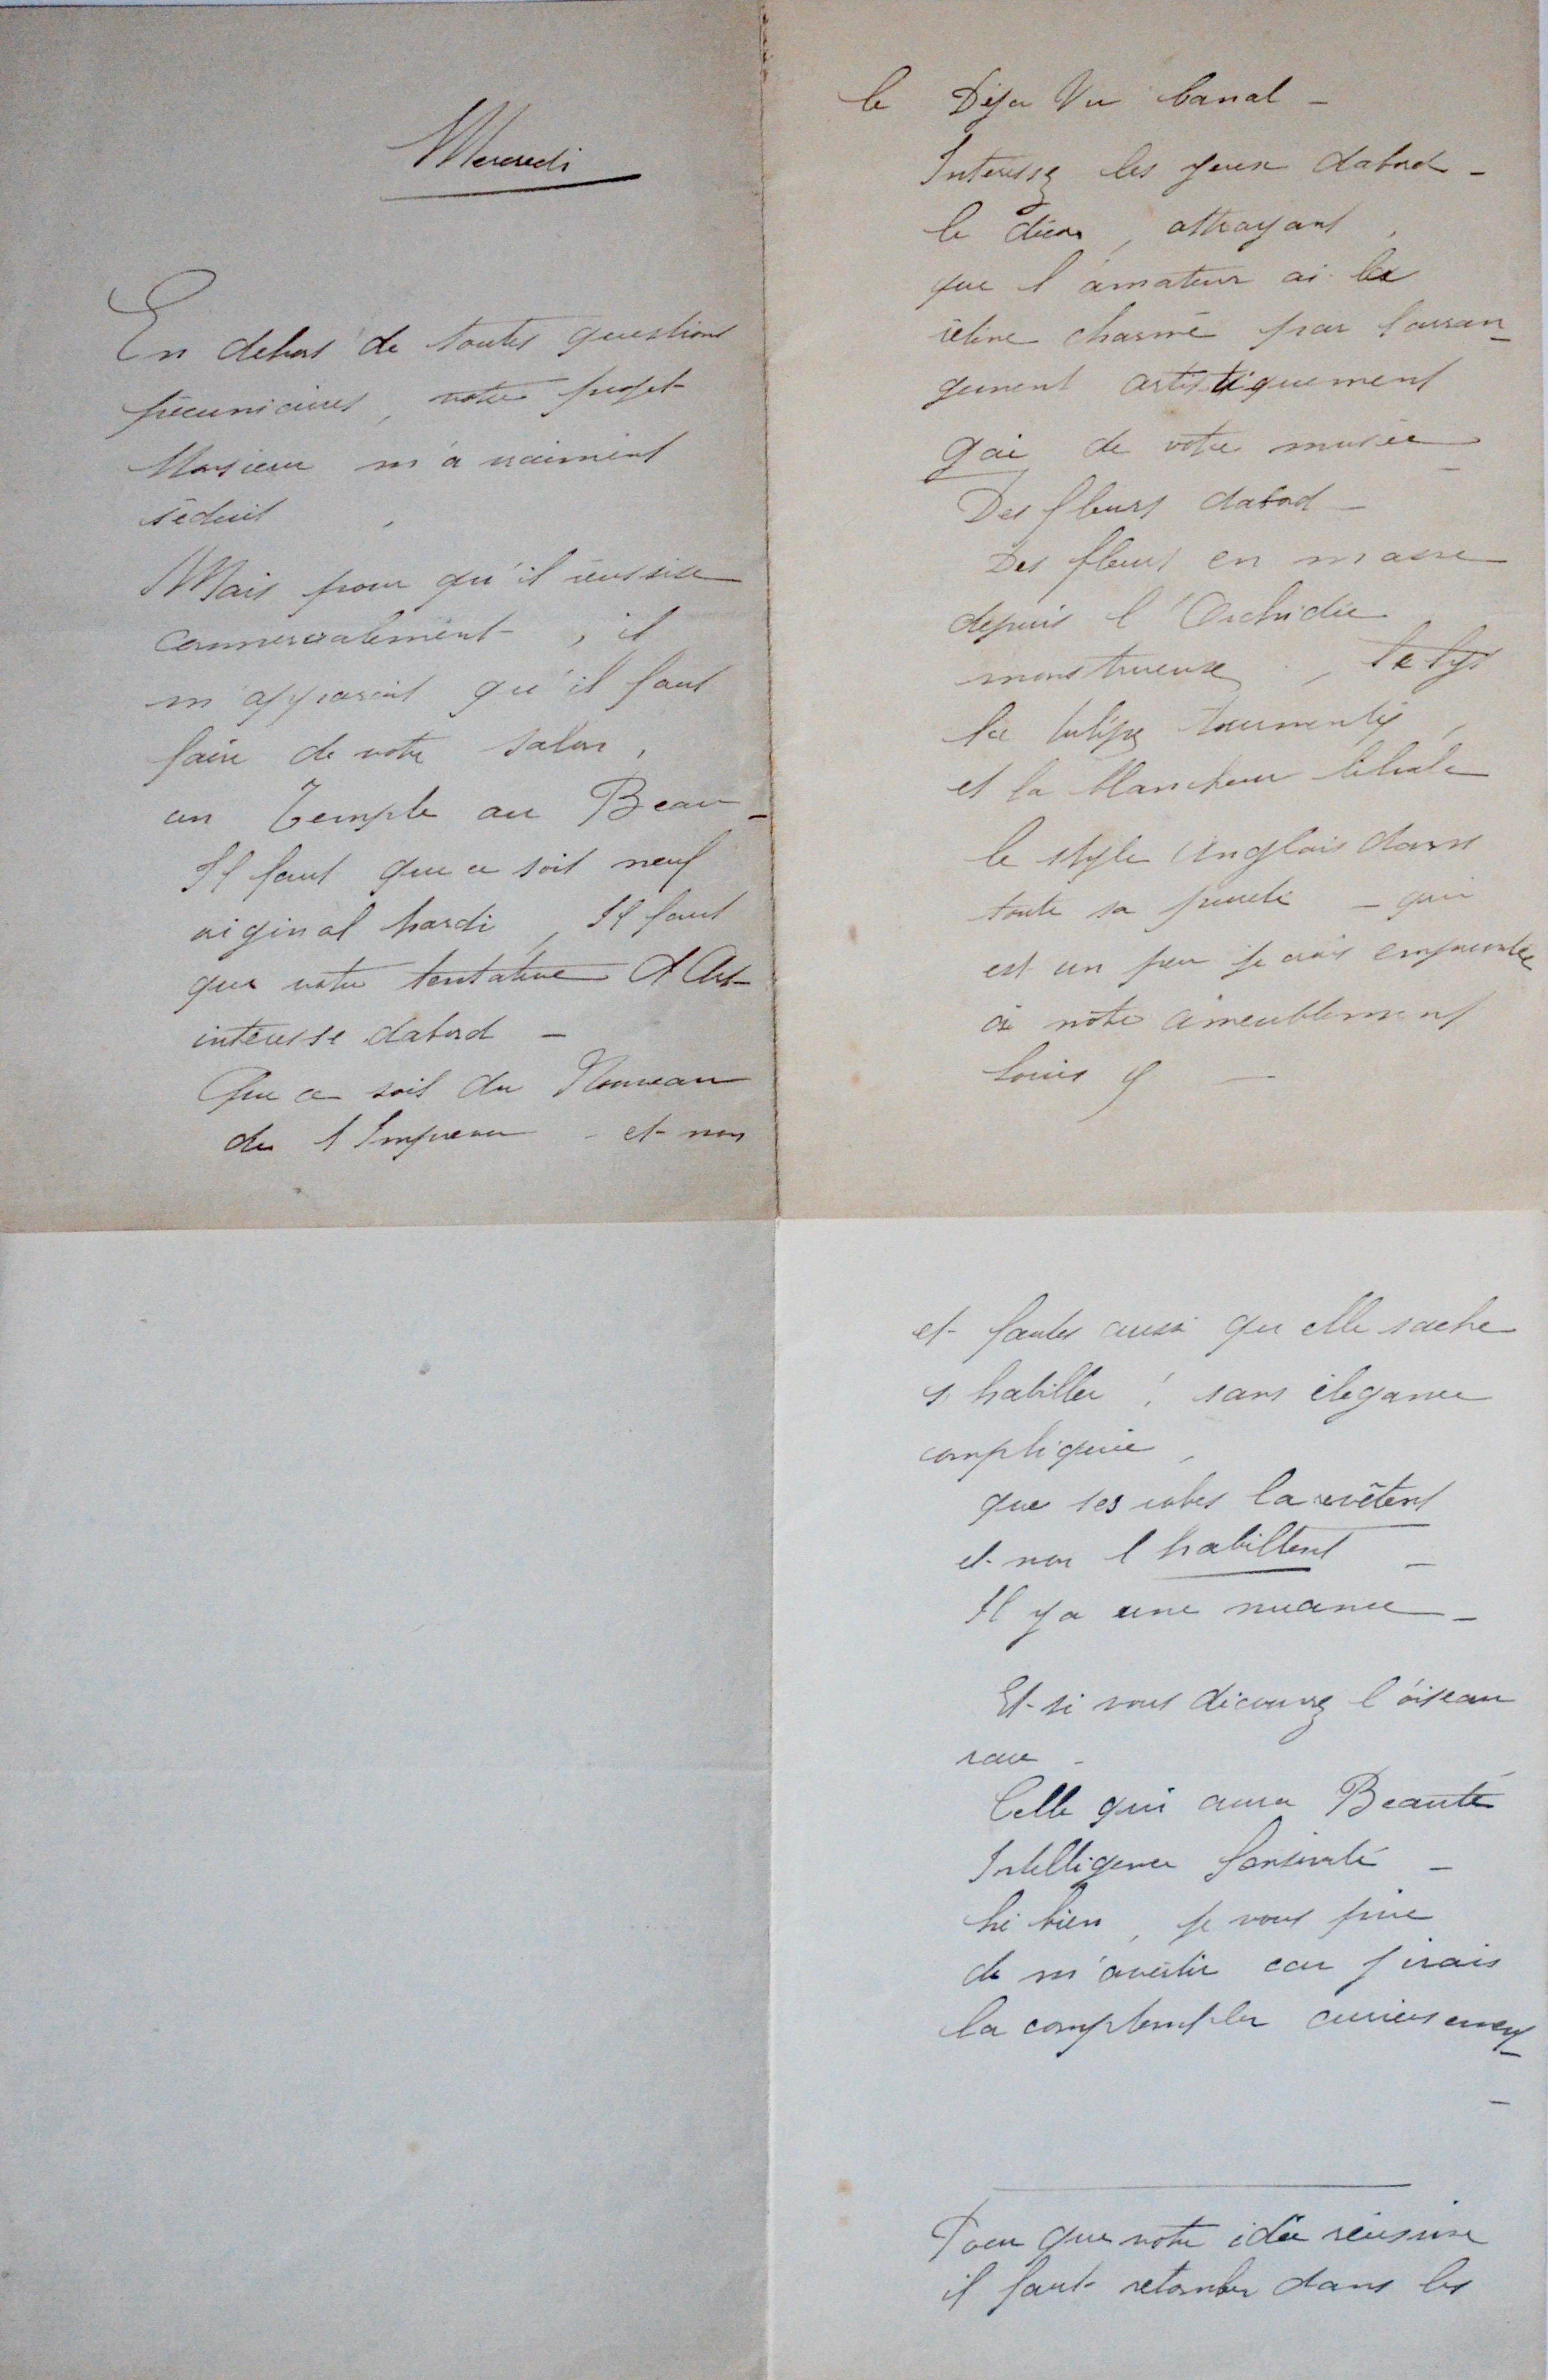 Mercredi
En dehors de toutes questions
pécuniaires, votre projet
Monsieur m'a vraiment
séduit
Mais pour qu'il réussise
commercialement, il
m'apparait qu'il faut
faire de votre salon,
un Temple au Beau -
Il faut que ce soit neuf
original hardi, Il faut
que votre tentative d'Art
intéresse dabord -
Que ce soit du Nouveau
de l Imprevu - et non
le Déja Vu banal -
Interessez les yeux dabord -
le décor, attrayant,
que l'amateur ai la
rétine charmé par l'arran-
gement artistiquement
gai de votre musée -
Des fleurs dabord -
Des fleurs en masse
depuis l'Orchidée
monstrueuse, le lys
la tulipe tourmentée,
et la blancheur liliale
le style Anglais dans
toute sa pureté - qui
est un peu je crois empruntée
à notre ameublement
Louis
et fautes aussi qu elle sache
s habiller ! sans élegance
compliquée,
que ses robes la revêtent
et non l habillent -
Il y a une nuance -
Et si vous découvrez l'oiseau
rare -
Celle qui aura Beauté
Intelligence Sonorité -
hé bien, je vous prie
de m'avertir car j irais
la comptempler curieusement -
Pour que votre idée réussise
il faut retomber dans les